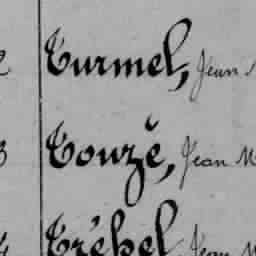 Turmel, Jean
Touzé, Jean M
Trébel, Jean